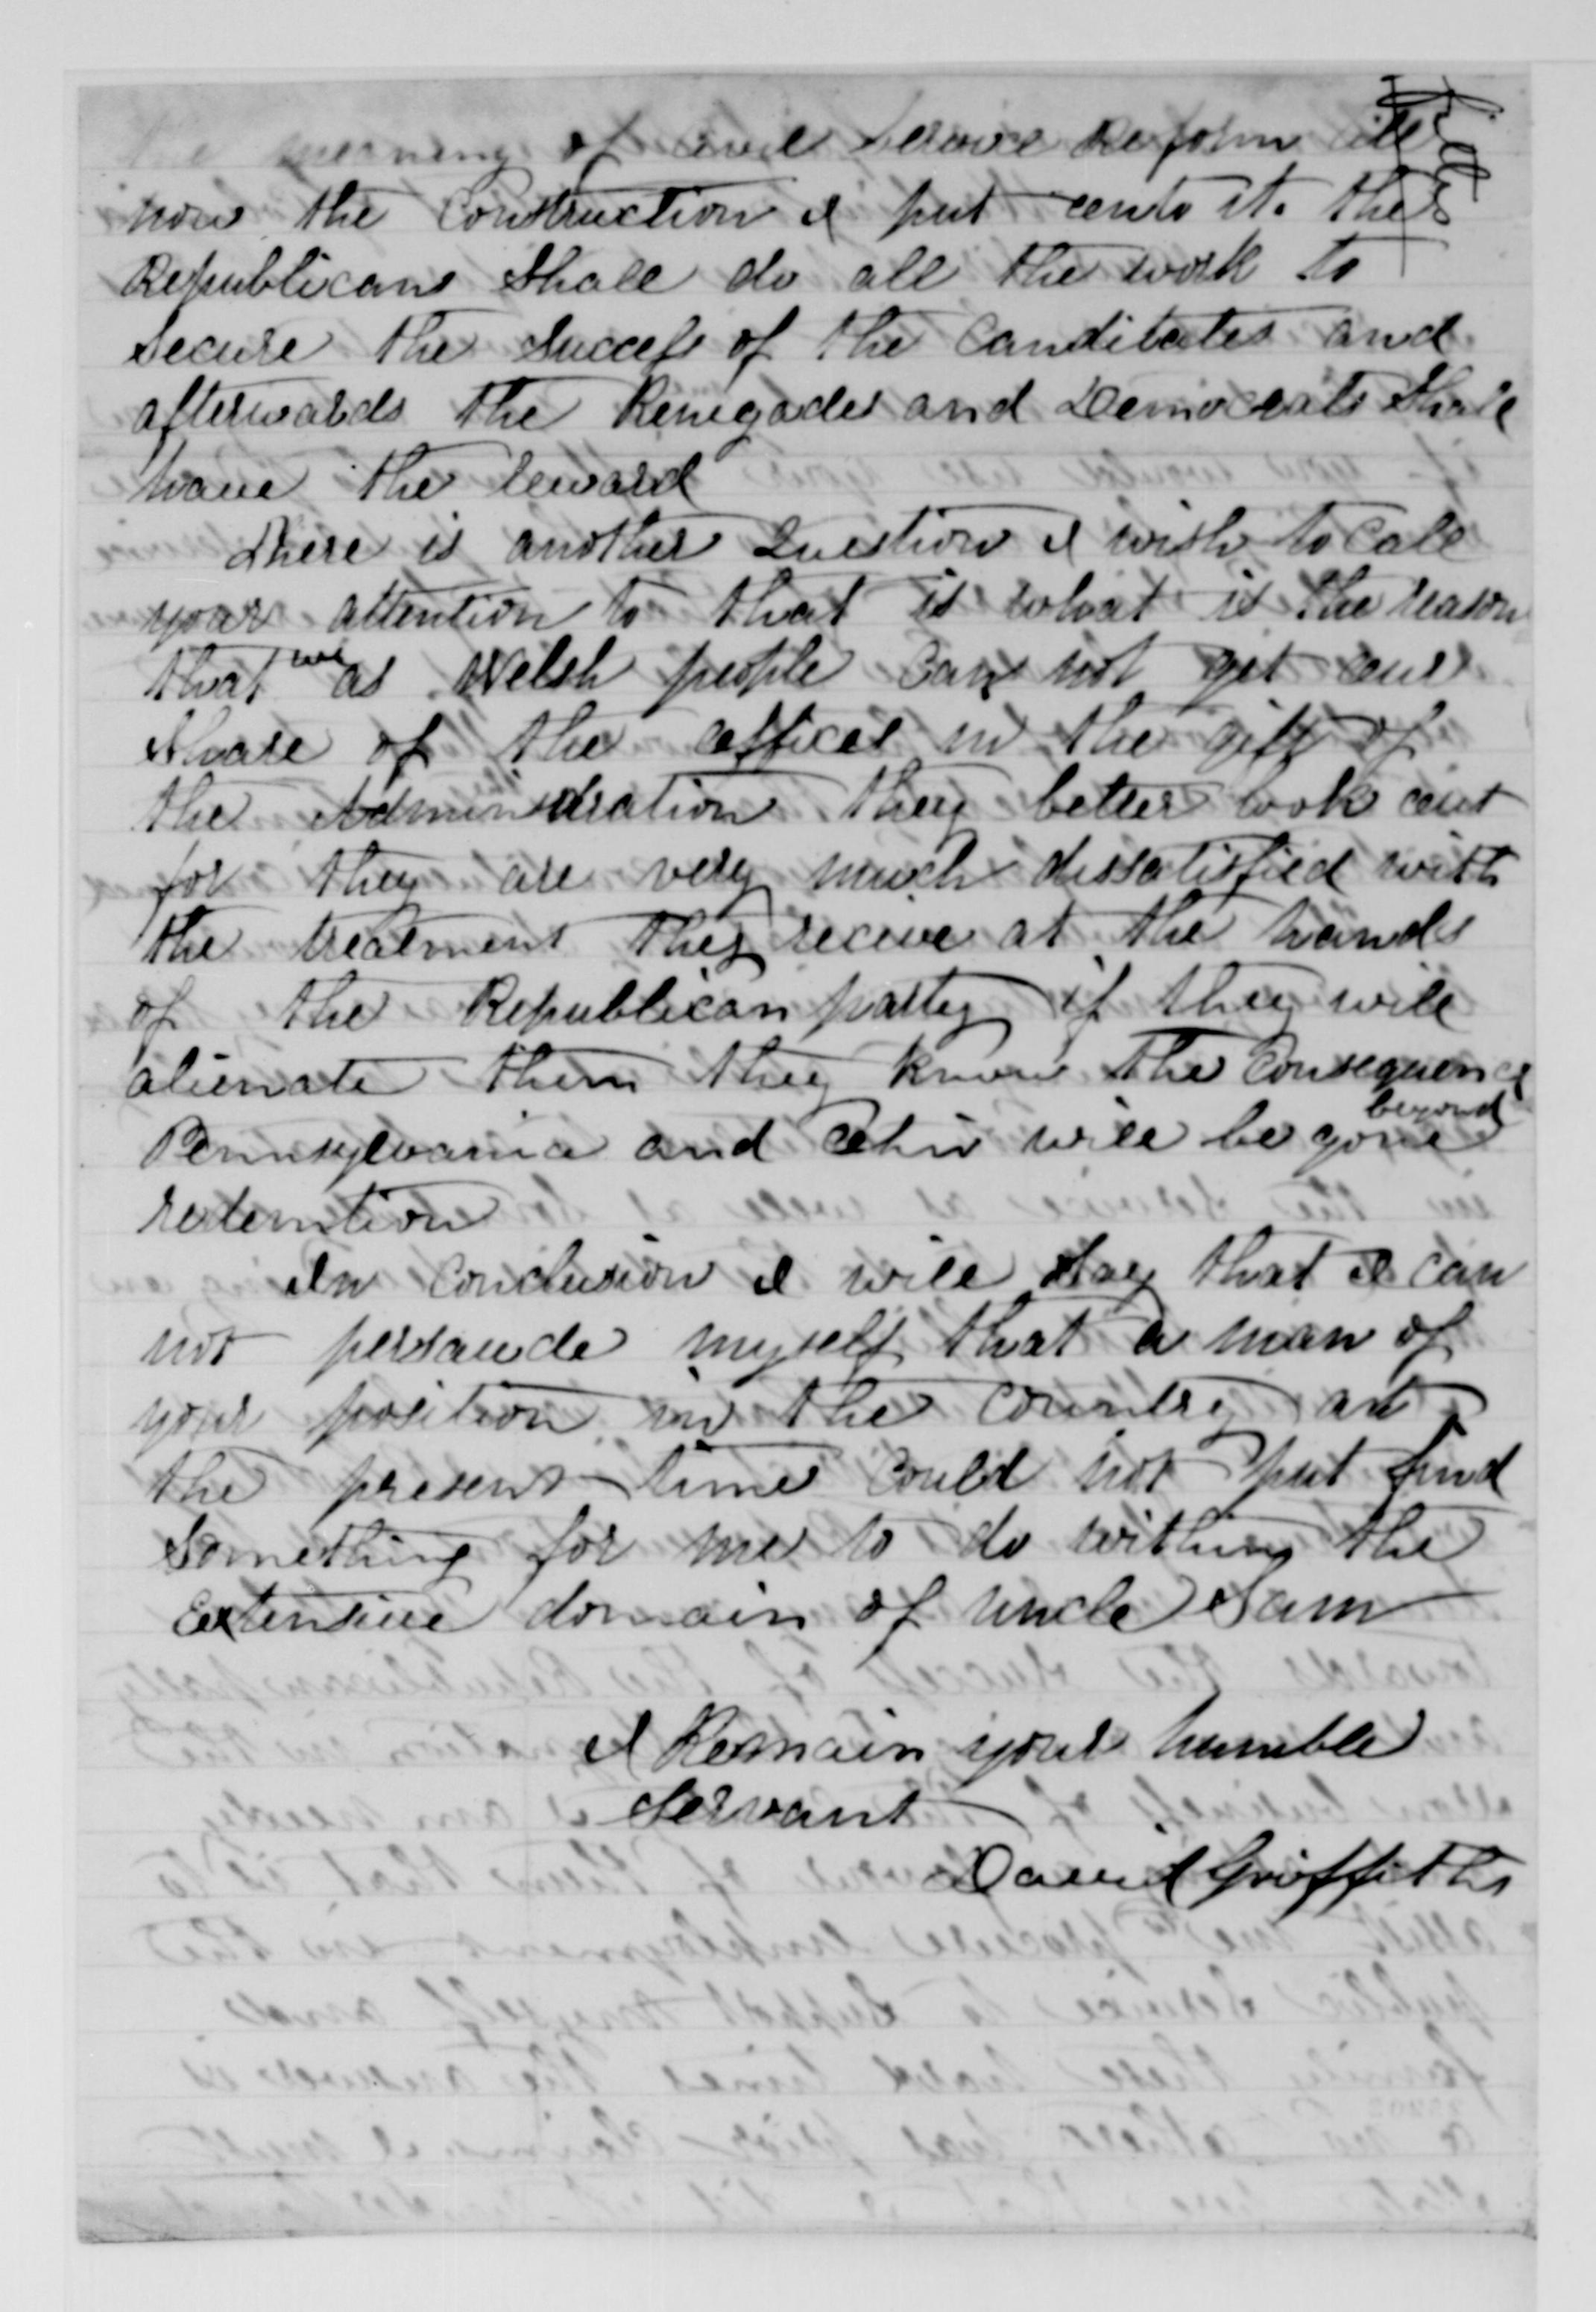 the meaning of civil Service Reform till
now the Construction I put onto it. the
Republicans Shall do all the work to
Secure the Success of the Canditates and
afterwards the Renegades and Democrats Shall
have the reward
There is another Question I wish to Call
your attention to that is what is the reason
that we as Welsh people Can not get our
Share of the offices in the gift of
the Adminisdration they better look out
for they are very much dissatisfied with
the treatment they receive at the hands
of the Republican party if they will
alienate them they know the Consequence
Pennsylvania and Ohio will be gone beyond
redemtion
In Conclusion I will Say that I can
not persaude myself that a man of
your position in the Country at
the present time Could not put find
Something for me to do within the
Extensive domain of Uncle Sam
I Remain your humble
Servant
David Griffiths